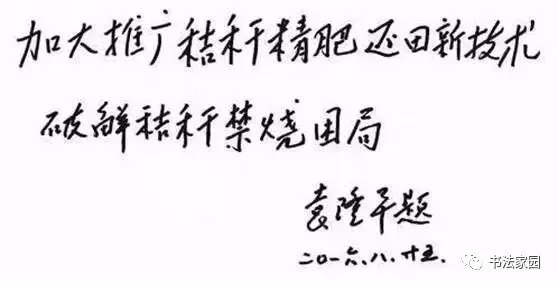 加大推广秸秆精肥还田新技术
破解秸秆禁烧困局
袁隆平题
二〇一六.八.廿五.
书法家园